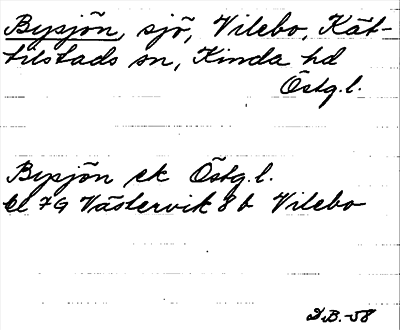 Bysjön, sjö, Vilebo, Kät-
tilstads sn, Kinda hd
Östg.l.
Bysjön ek Östg.l.
bl 7G Västervik 8b Vilebo
D.B.-58